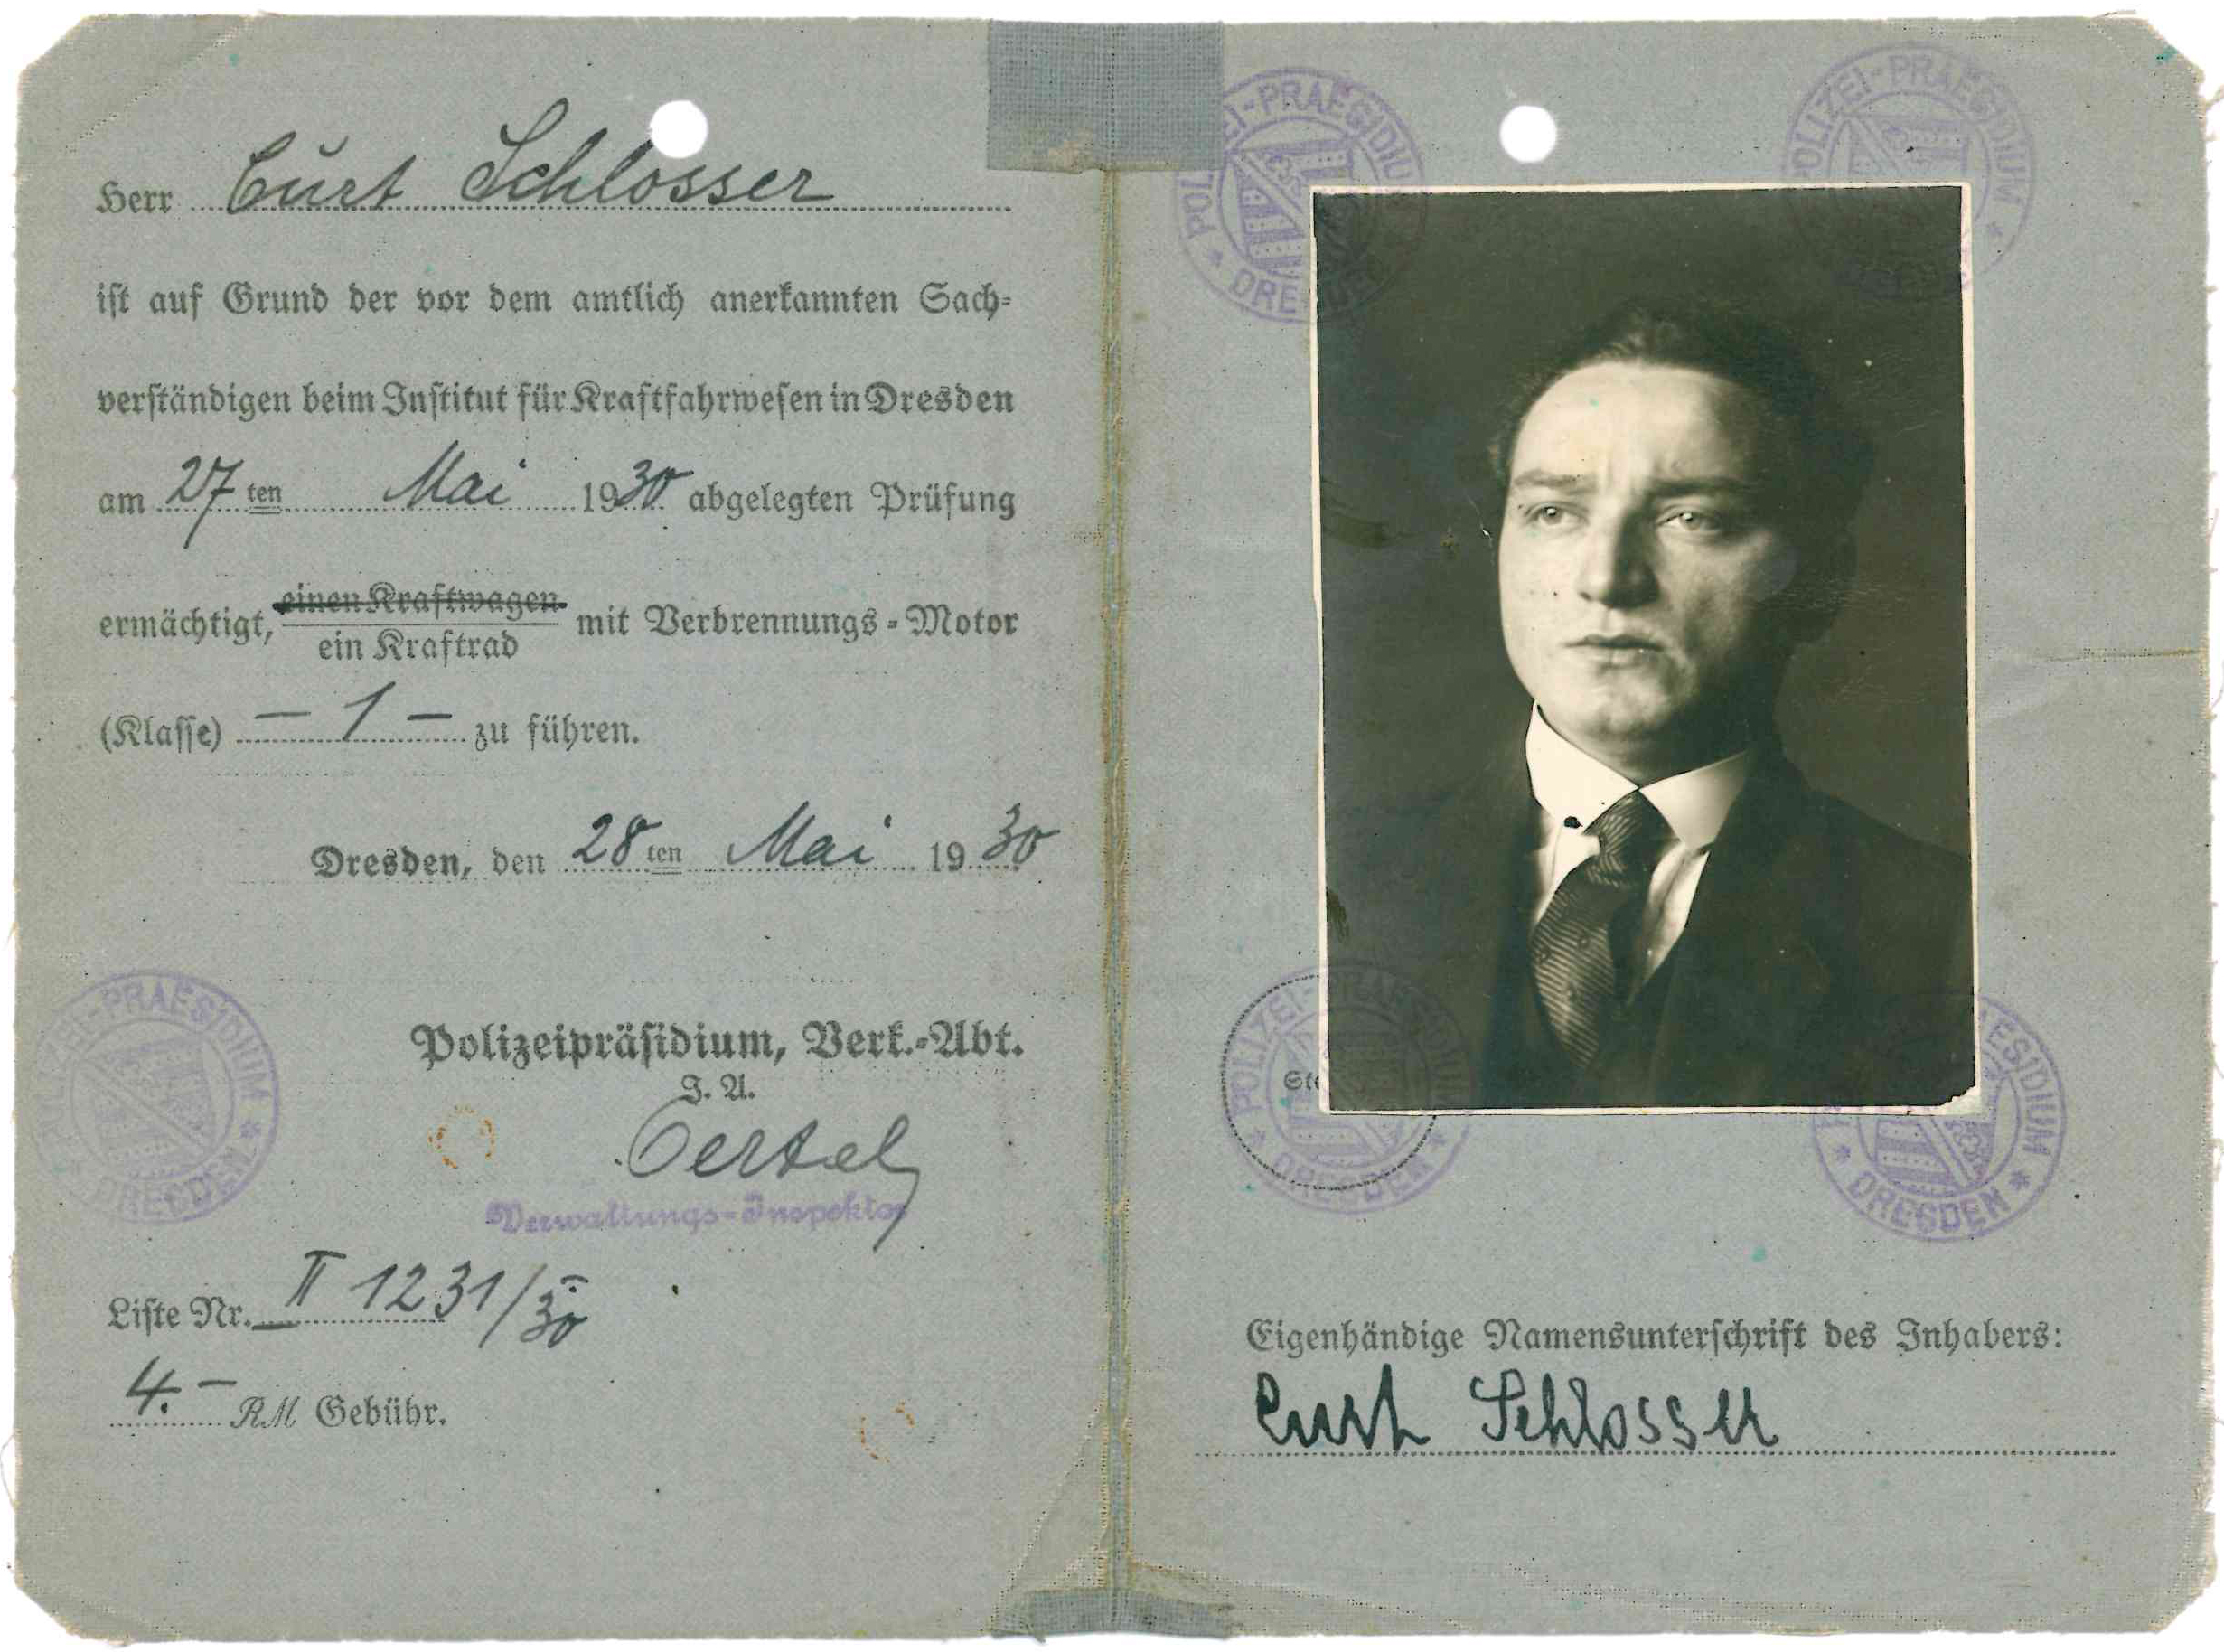 Herr Curt Schlosser
ist auf Grund der vor dem amtlich anerkannten Sach-
verständigen beim Institut für Kraftfahrwesen in Dresden
am 27ten Mai 1930 abgelegten Prüfung
ermächtigt, einen Kraftwagen mit Verbrennungs-Motor
ein Kraftrad
(Klasse) – 1 – zu führen.
Dresden, den 28ten Mai 1930
Polizeipräsidium, Verk.-Abt.
I. A.
Oertel
Verwaltungs-Inspektor
POLIZEI-PRAESIDIUM * DRESDEN *
Liste Nr. II 1231/30
4.– RM Gebühr.
POLIZEI-PRAESIDIUM * DRESDEN *
POLIZEI-PRAESIDIUM *
POLIZEI-PRAESIDIUM * DRESDEN *
ESIDIUM * DRESDEN *
Ste
Eigenhändige Namensunterschrift des Inhabers:
Curt Schlosser